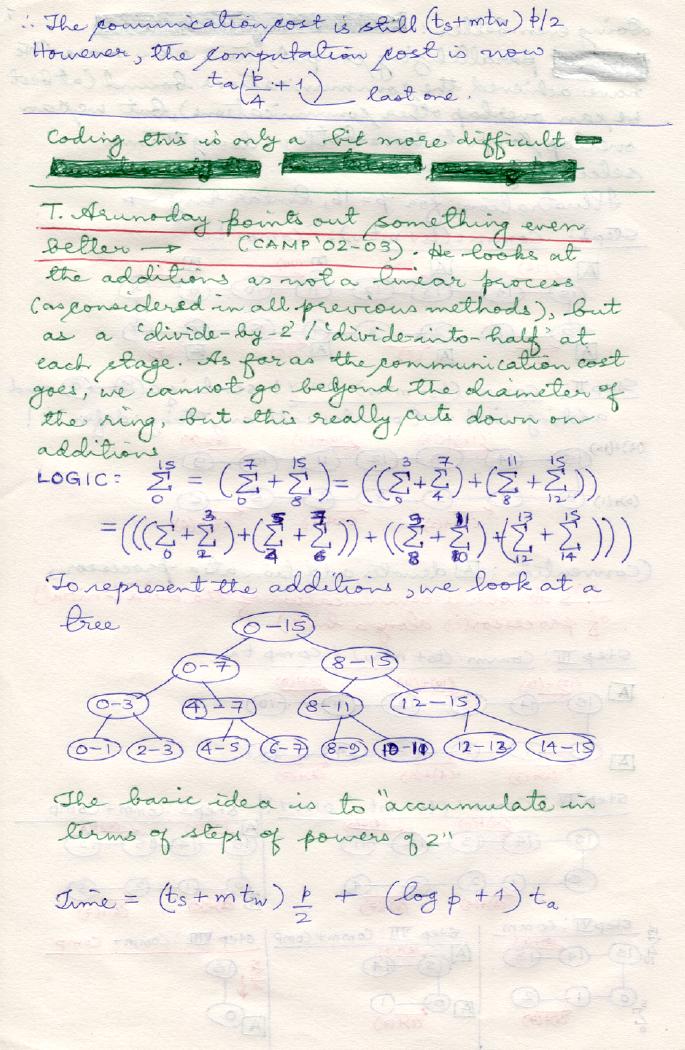 ∴ The communication cost is still (ts+mtw) p/2
However, the computation cost is now
ta(p/4 + 1) last one.
Coding this is only a bit more difficult
T. Arunoday points out something even
better → (CAMP'02-03). He looks at
the additions as not a linear process
(as considered in all previous methods), but
as a 'divide-by-2' / 'divide-into-half' at
each stage. As far as the communication cost
goes, we cannot go beyond the diameter of
the ring, but this really cuts down on
additions
LOGIC: Σ_0^15 = (Σ_0^7 + Σ_8^15) = ((Σ_0^3 + Σ_4^7) + (Σ_8^11 + Σ_12^15))
= (((Σ_0^1 + Σ_2^3) + (Σ_4^5 + Σ_6^7)) + ((Σ_8^9 + Σ_10^11) + (Σ_12^13 + Σ_14^15)))
To represent the additions, we look at a
tree
0-15
0-7 8-15
0-3 4-7 8-11 12-15
0-1 2-3 4-5 6-7 8-9 10-11 12-13 14-15
The basic idea is to "accumulate in
terms of steps of powers of 2"
Time = (ts + mtw) p/2 + (log p + 1) ta